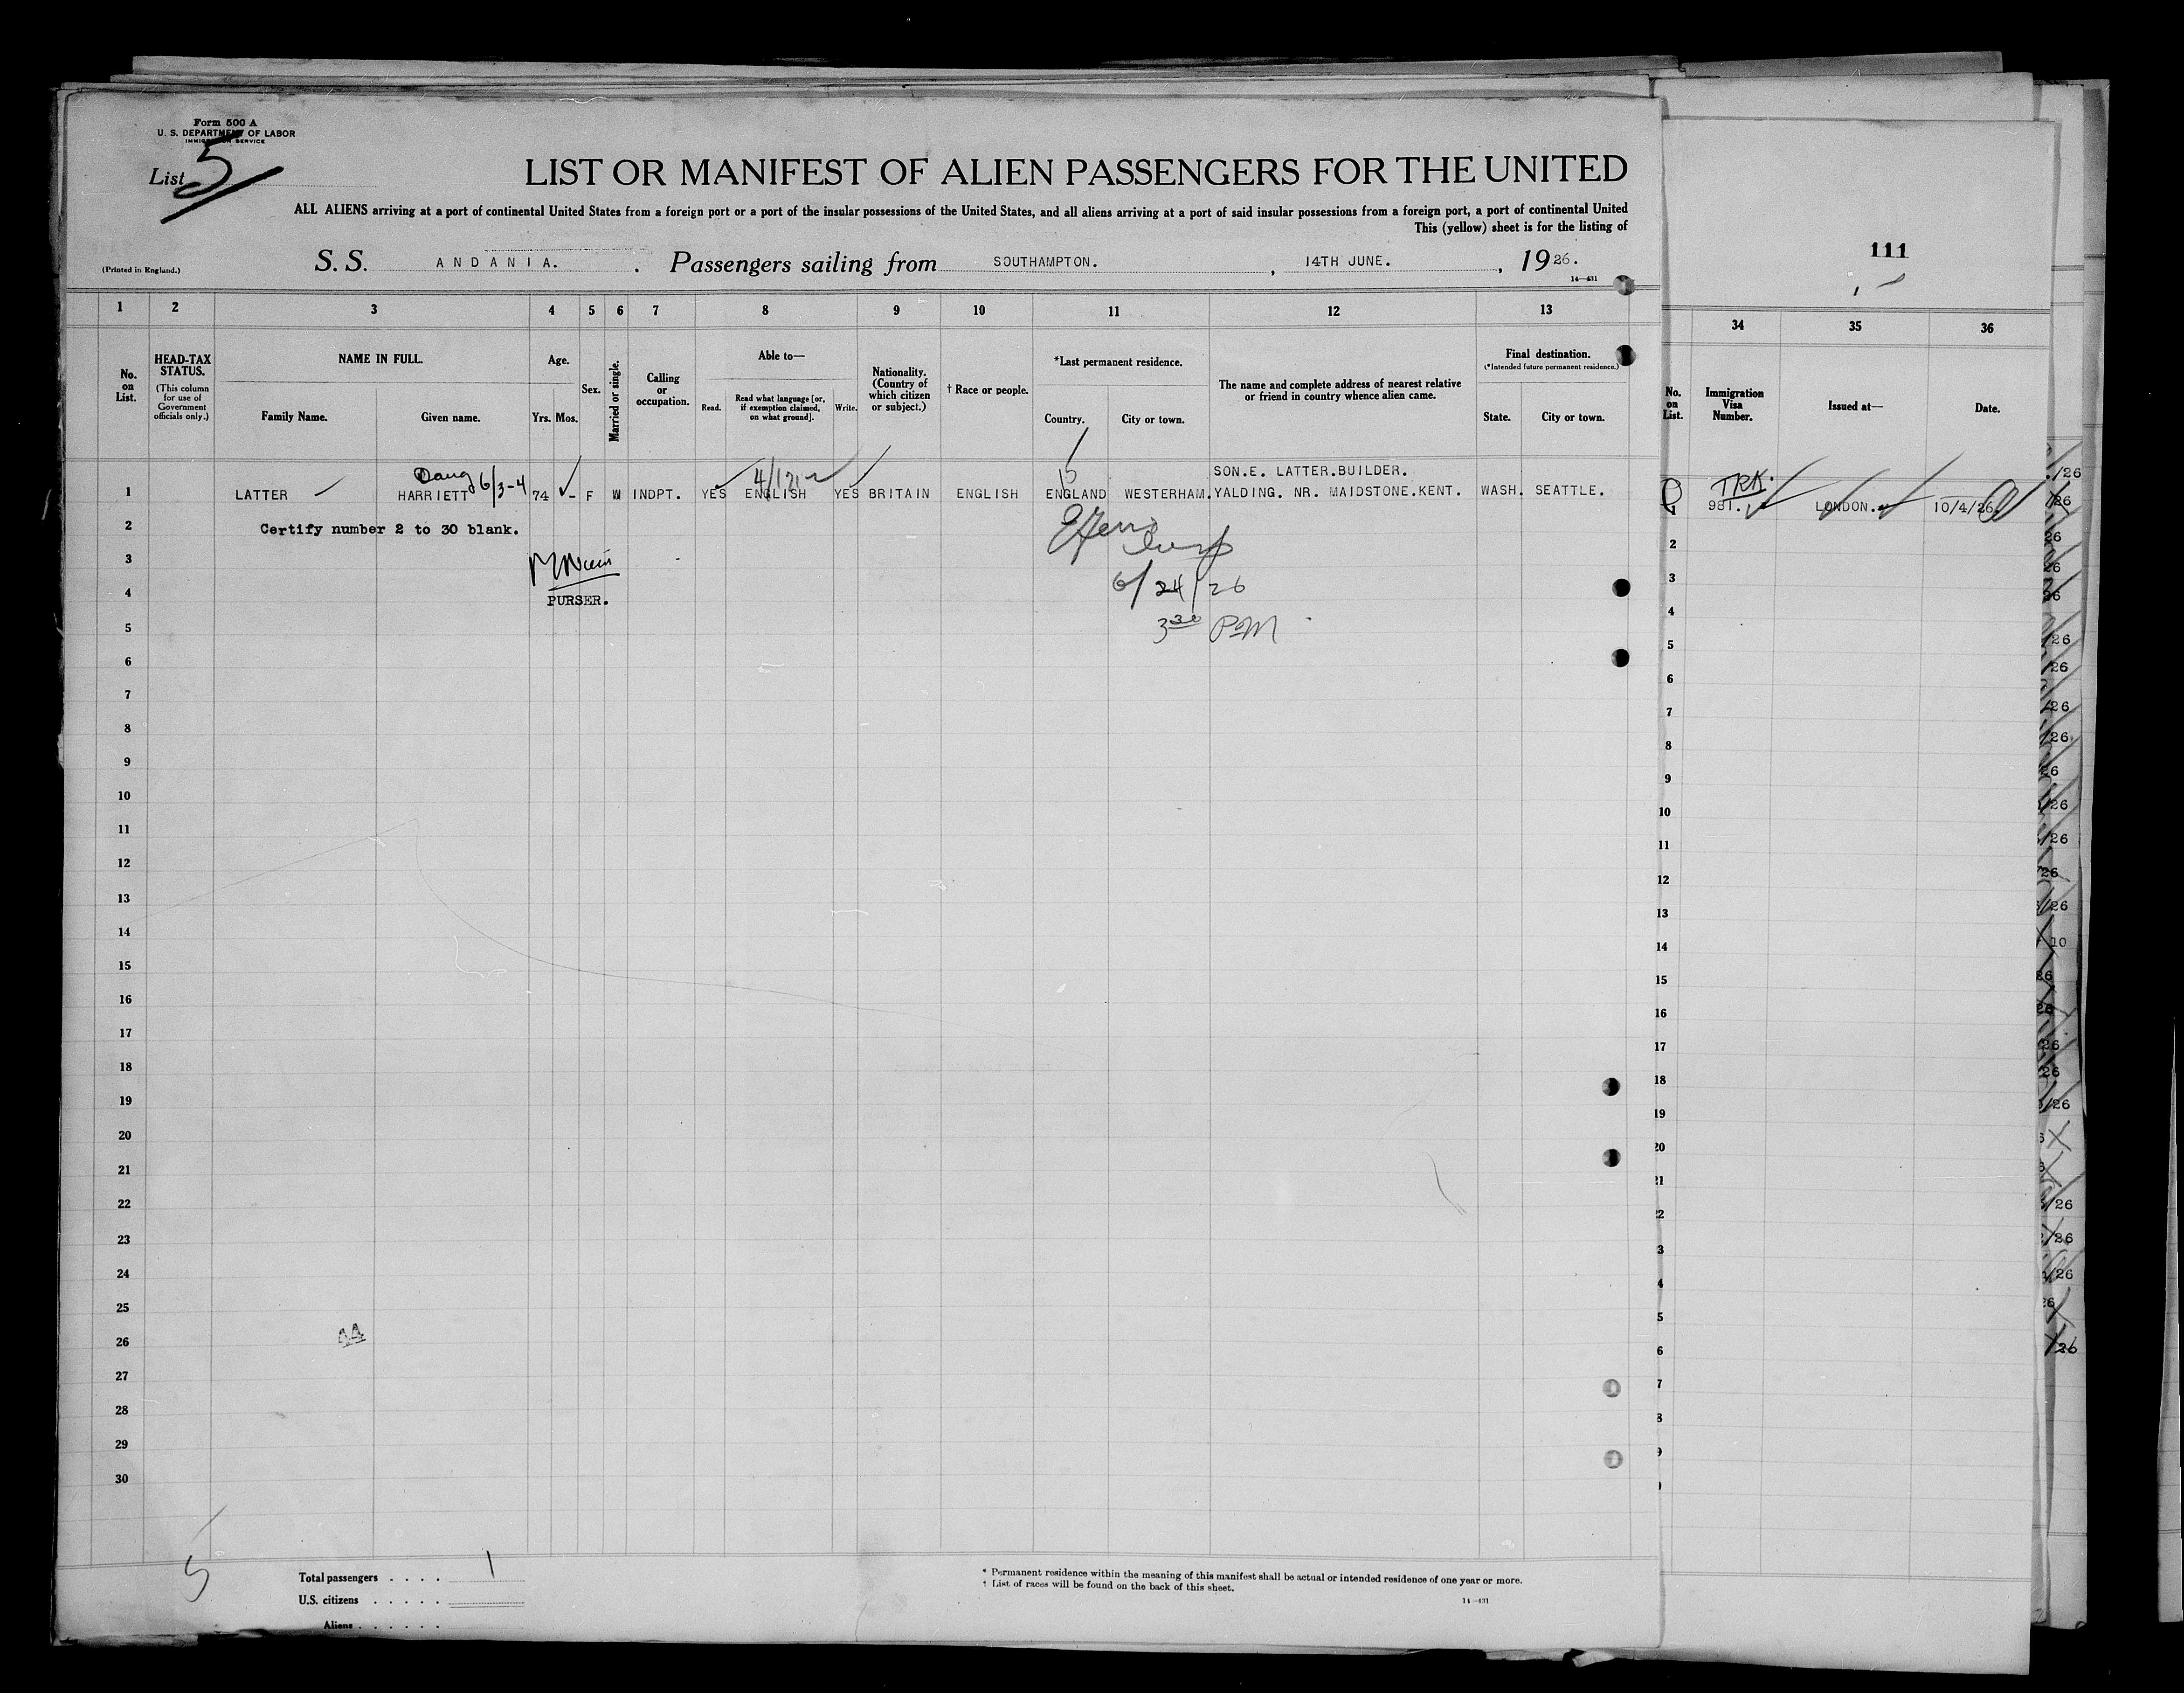 Form 500 A
U. S. DEPARTMENT OF LABOR
IMMIGRATION SERVICE
List 5
LIST OR MANIFEST OF ALIEN PASSENGERS FOR THE UNITED
ALL ALIENS arriving at a port of continental United States from a foreign port or a port of the insular possessions of the United States, and all aliens arriving at a port of said insular possessions from a foreign port, a port of continental United
This (yellow) sheet is for the listing of
(Printed in England.)
S. S. ANDANIA. . Passengers sailing from SOUTHAMPTON. , 14TH JUNE. , 1926.
14—431
111
1 2 3 4 5 6 7 8 9 10 11 12 13
34 35 36
No. on List.
HEAD-TAX STATUS.
(This column for use of Government officials only.)
NAME IN FULL.
Family Name. Given name.
Age.
Yrs. Mos.
Sex.
Married or single.
Calling or occupation.
Able to—
Read. Read what language [or, if exemption claimed, on what ground]. Write.
Nationality. (Country of which citizen or subject.)
† Race or people.
*Last permanent residence.
Country. City or town.
The name and complete address of nearest relative or friend in country whence alien came.
Final destination.
(*Intended future permanent residence.)
State. City or town.
No. on List.
Immigration Visa Number.
Issued at—
Date.
Daug 6/3-4
SON.E. LATTER.BUILDER.
1 LATTER HARRIETT 74 - F W INDPT. YES ENGLISH YES BRITAIN ENGLISH ENGLAND WESTERHAM. YALDING. NR. MAIDSTONE.KENT. WASH. SEATTLE.
TRK.
981. LONDON. 10/4/26
2 Certify number 2 to 30 blank.
3
PURSER.
4
6/24/26
5
3 30 PM
6
7
8
9
10
11
12
13
14
15
16
17
18
19
20
21
22
23
24
25
26
44
27
28
29
30
5
Total passengers . . . . 1
U.S. citizens . . . . .
Aliens . . . . . .
* Permanent residence within the meaning of this manifest shall be actual or intended residence of one year or more.
† List of races will be found on the back of this sheet.
14—431